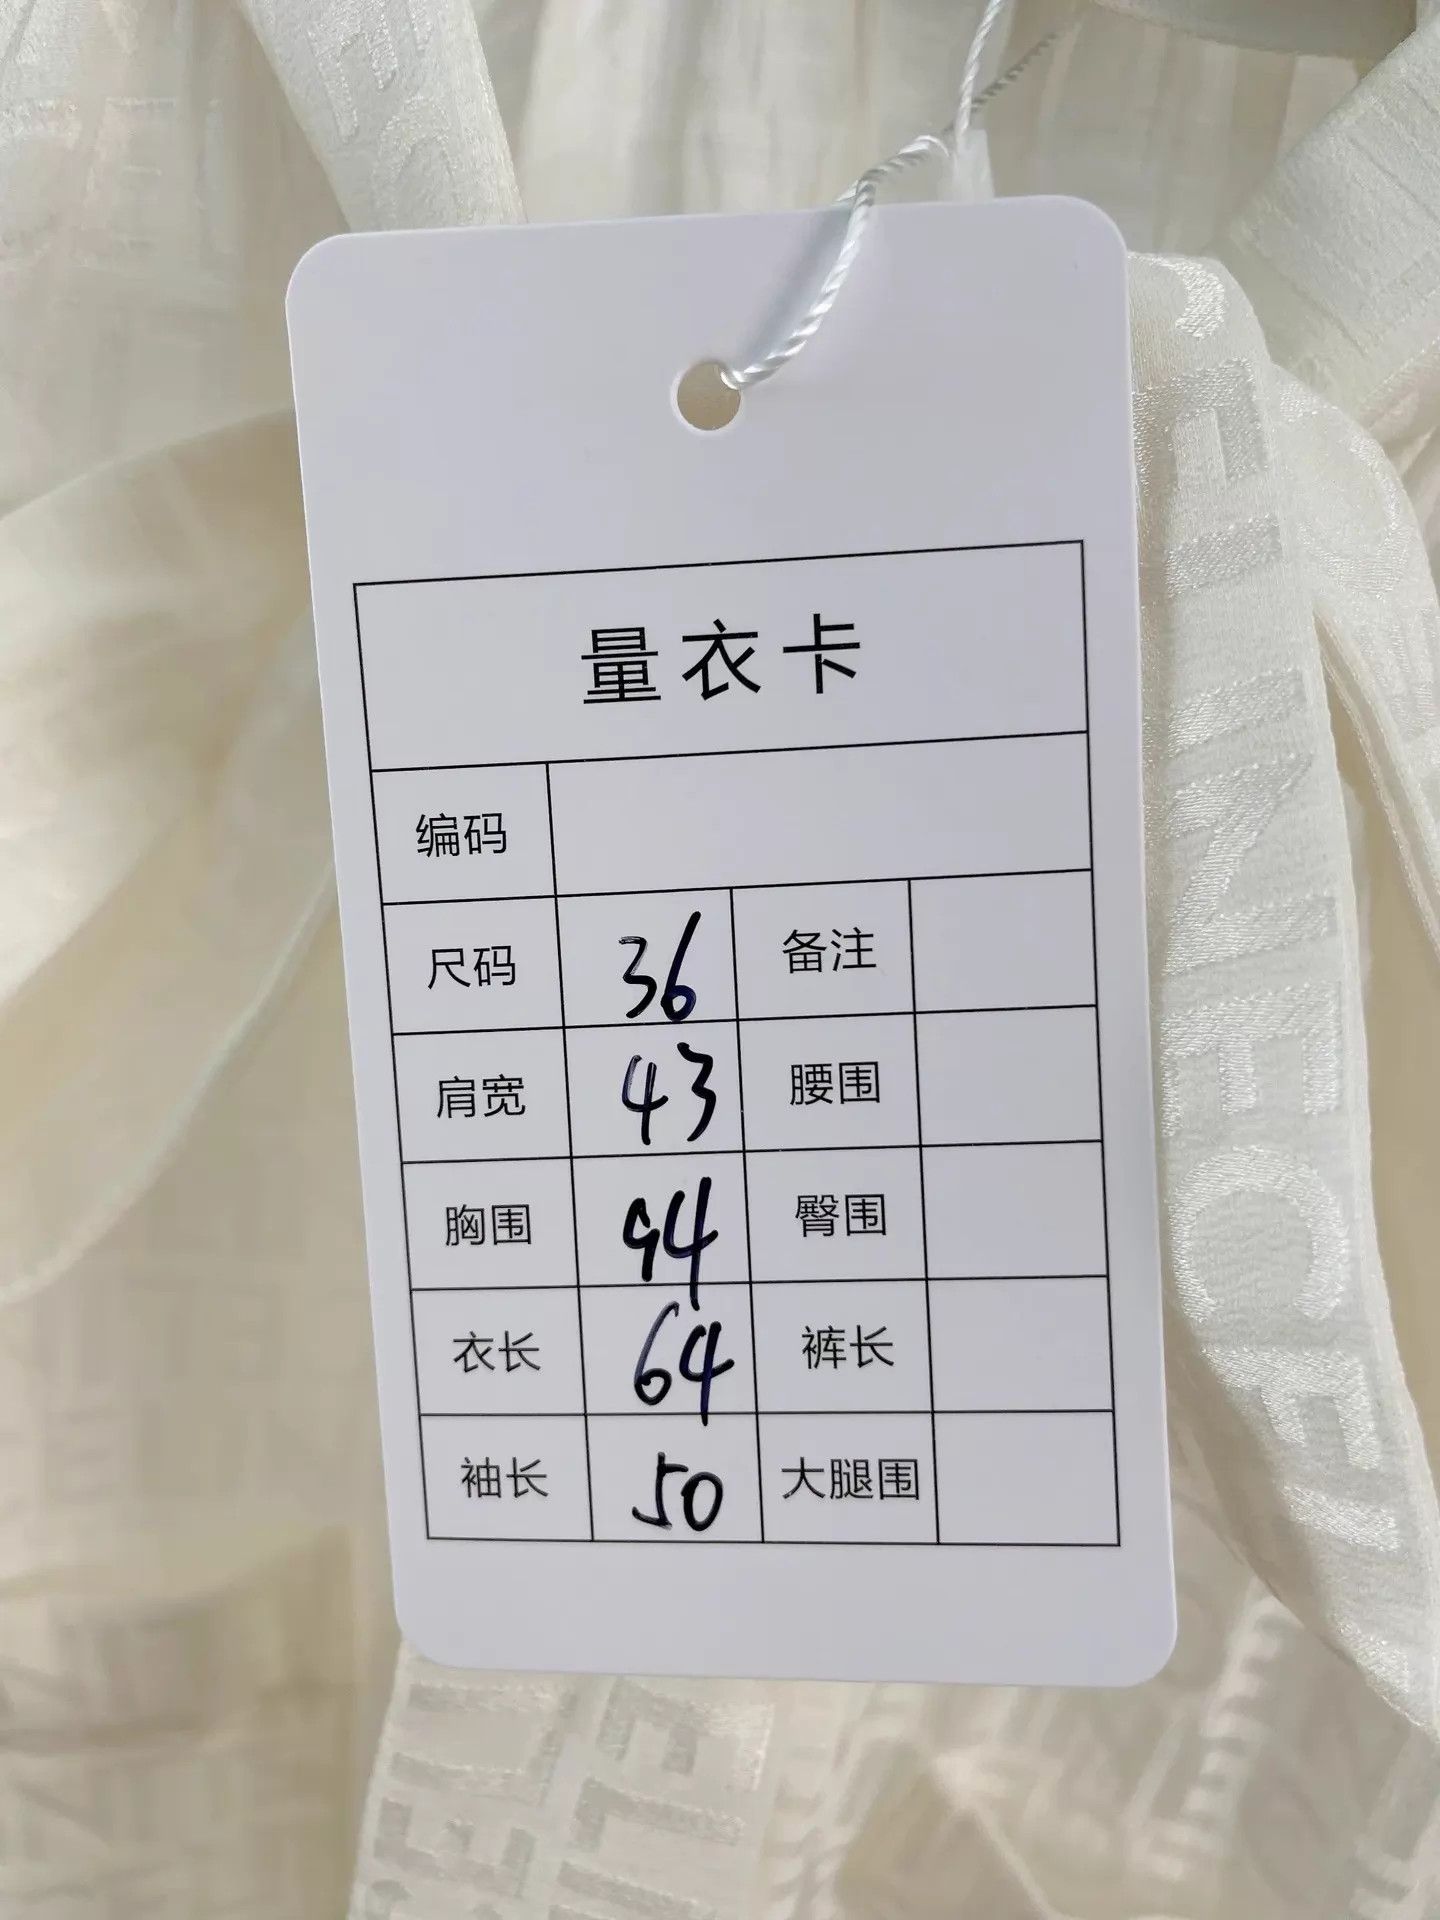 量衣卡
编码
尺码 36 备注
肩宽 43 腰围
胸围 94 臀围
衣长 64 裤长
袖长 50 大腿围